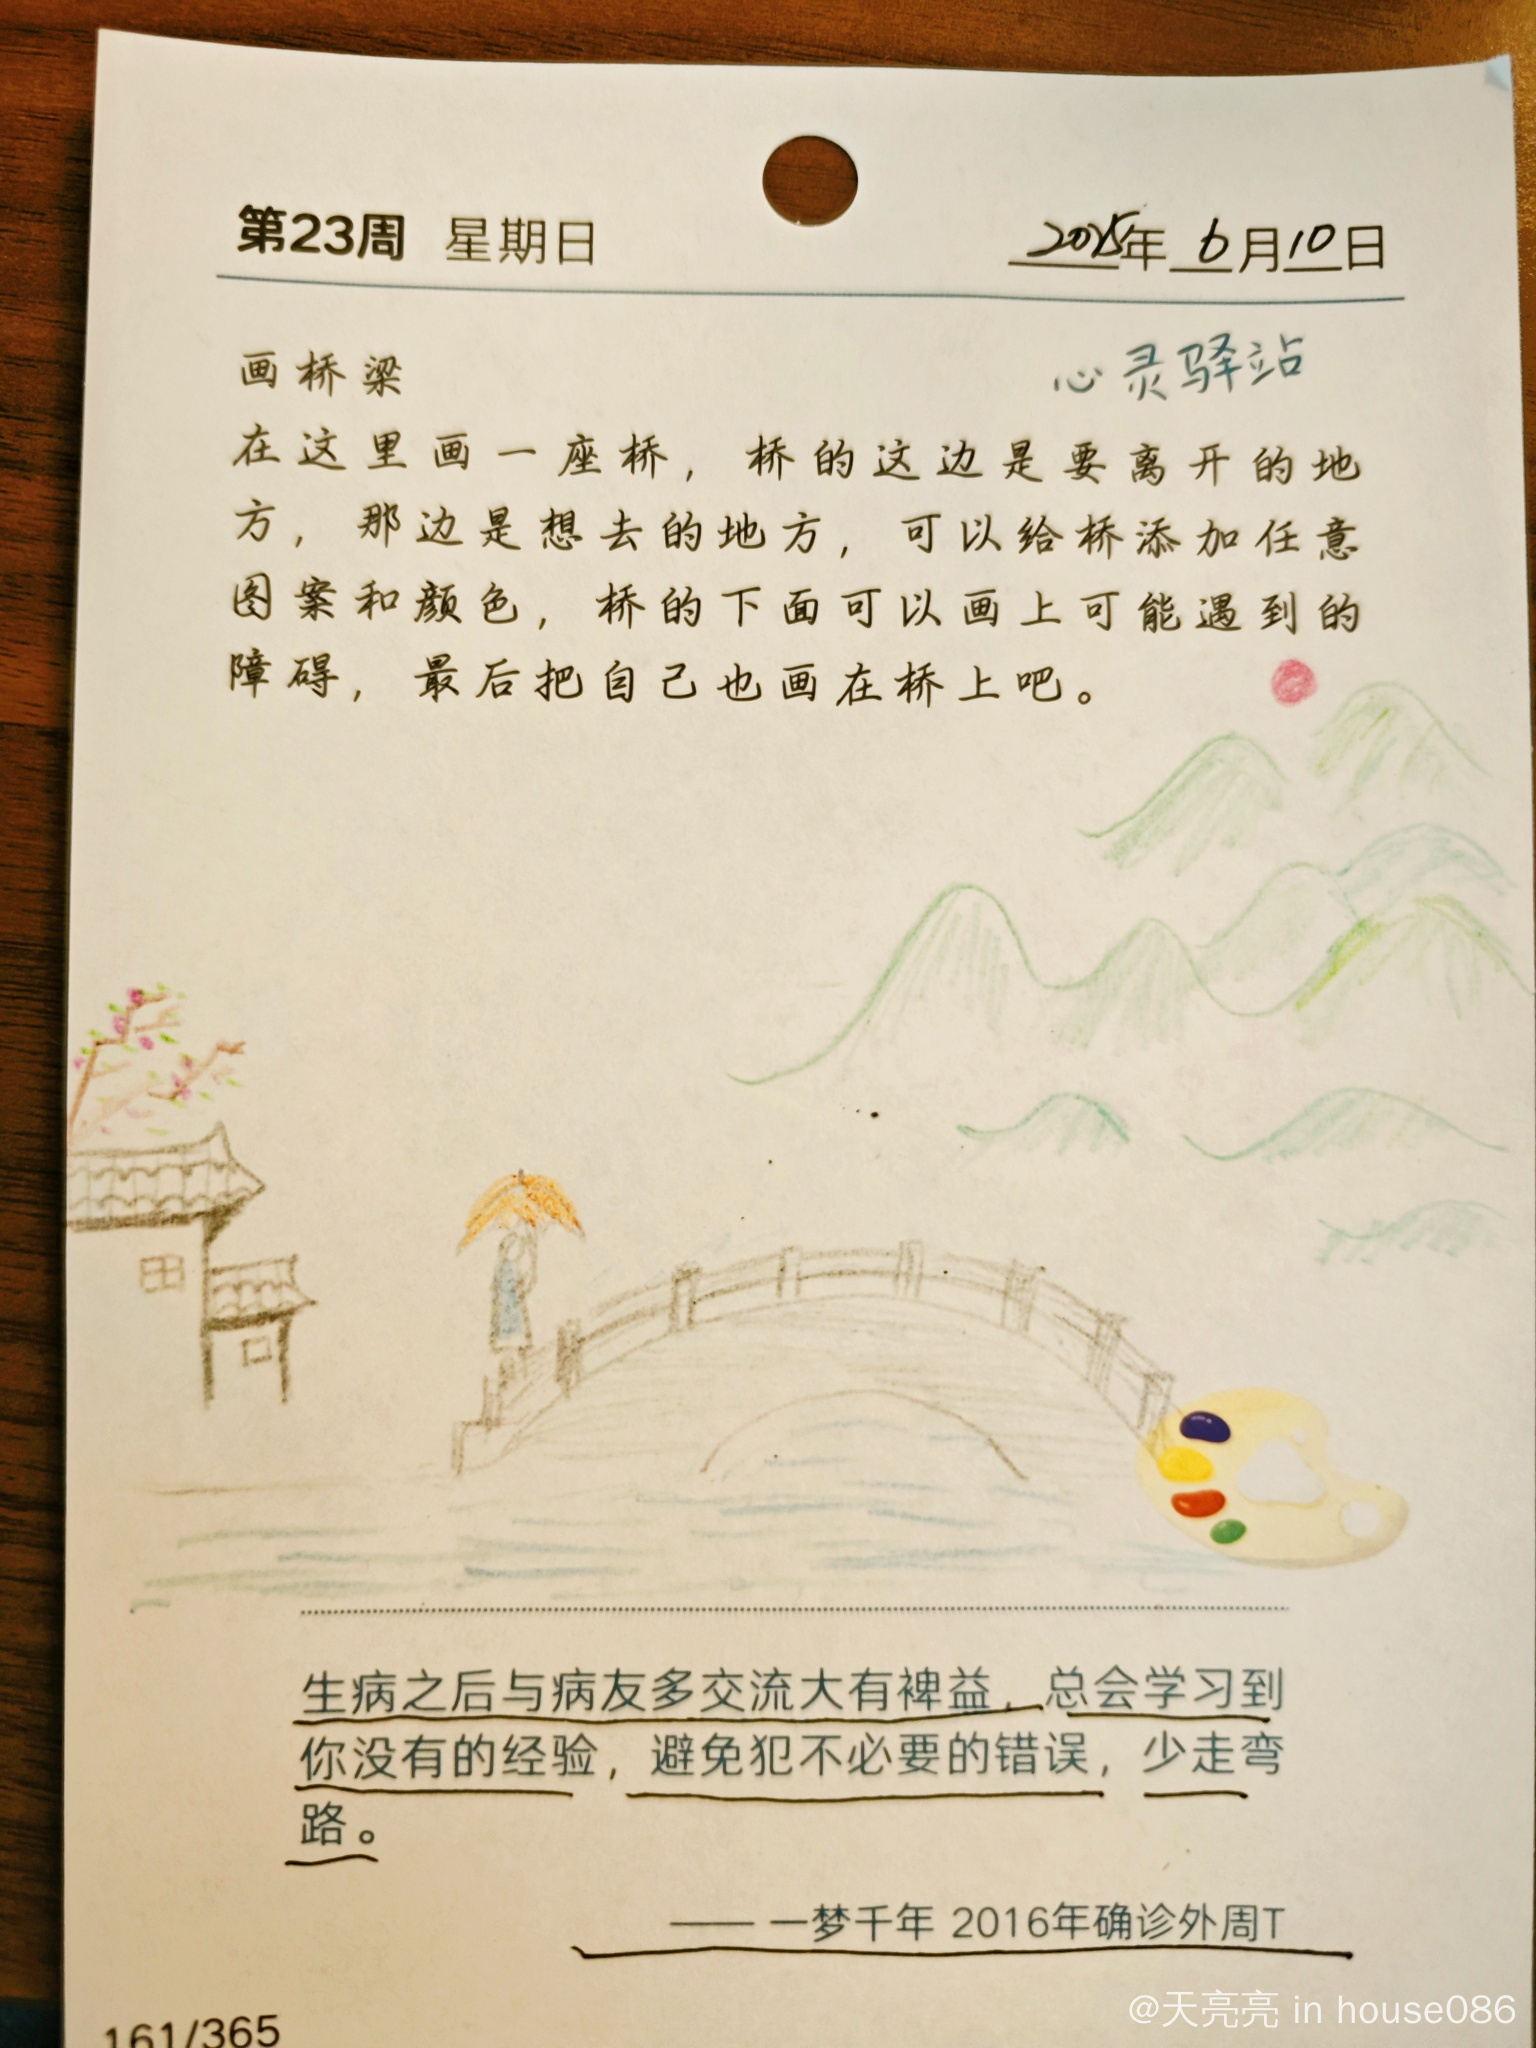 第23周 星期日
2025年 6月10日
画桥梁
心灵驿站
在这里画一座桥，桥的这边是要离开的地
方，那边是想去的地方，可以给桥添加任意
图案和颜色，桥的下面可以画上可能遇到的
障碍，最后把自己也画在桥上吧。
生病之后与病友多交流大有裨益，总会学习到
你没有的经验，避免犯不必要的错误，少走弯
路。
—— 一梦千年 2016年确诊外周T
161/365
@天亮亮 in house086